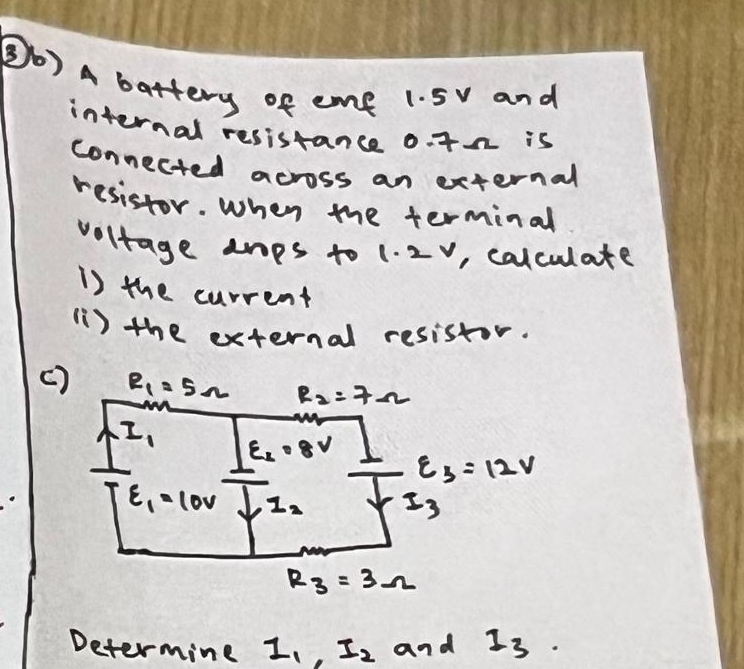 3b) A battery of emf 1.5V and
internal resistance 0.7Ω is
connected across an external
resistor. When the terminal
voltage drops to 1.2V, calculate
i) the current
ii) the external resistor.
c) R₁=5Ω R₂=7Ω
I₁ Ɛ₂=8V
Ɛ₃=12V
Ɛ₁=10V I₂ I₃
R₃=3Ω
Determine I₁, I₂ and I₃.